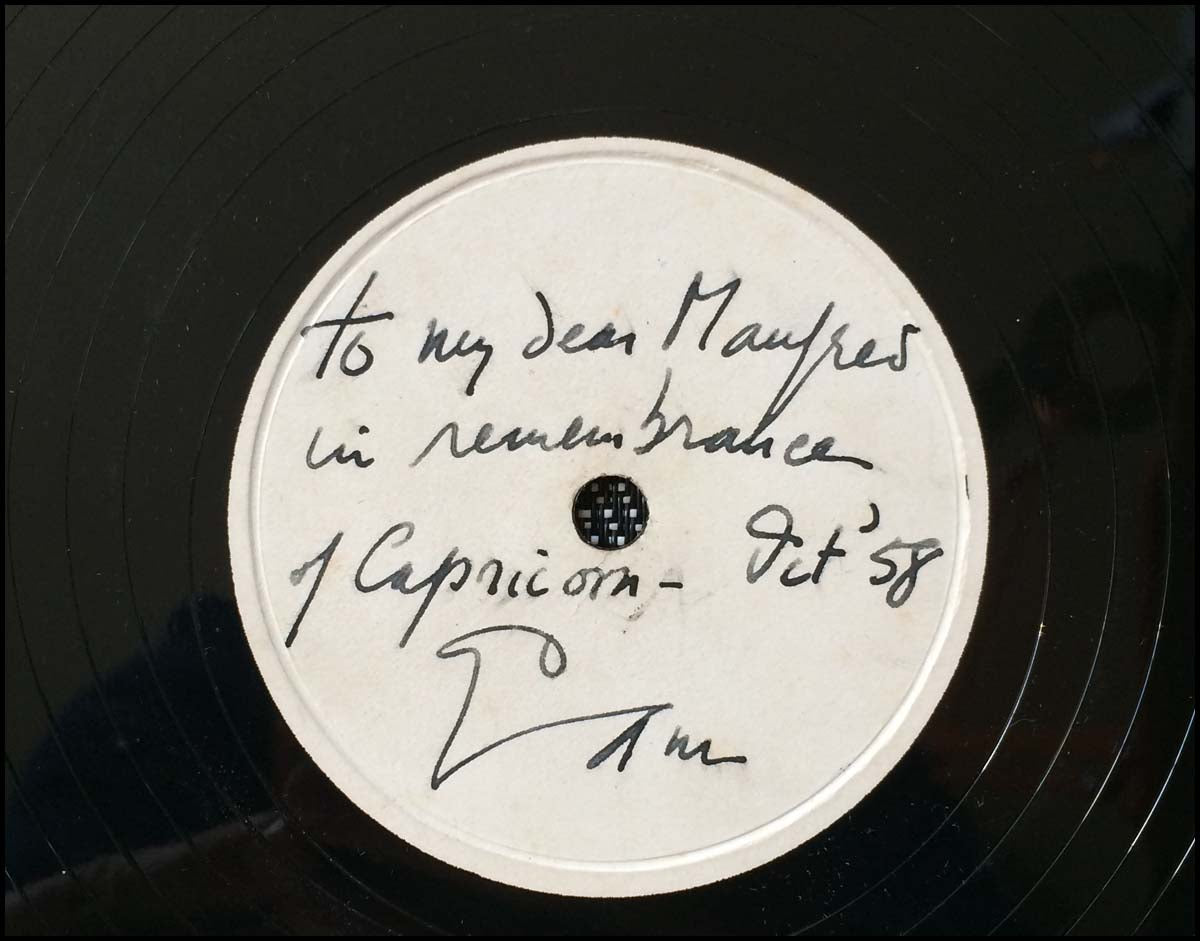 to my dear Manfred
in remembrance
of Capricorn - Oct '58